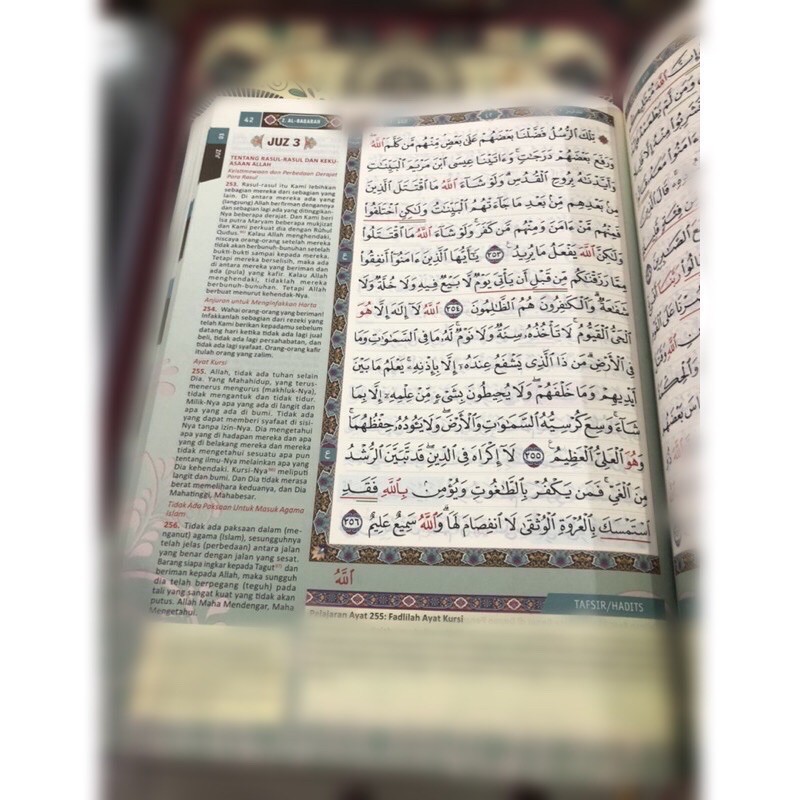 42
2. AL-BAQARAH
JUZ 3
TENTANG RASUL-RASUL DAN KEKU-
ASAAN ALLAH
Keistimewaan dan Perbedaan Derajat
Para Rasul
253. Rasul-rasul itu Kami lebihkan
sebagian mereka dari sebagian yang
lain. Di antara mereka ada yang
(langsung) Allah berfirman dengannya
dan sebagian lagi ada yang ditinggikan-
Nya beberapa derajat. Dan Kami beri
Isa putra Maryam beberapa mukjizat
dan Kami perkuat dia dengan Rūhul
Qudus. Kalau Allah menghendaki,
niscaya orang-orang setelah mereka
tidak akan berbunuh-bunuhan setelah
bukti-bukti sampai kepada mereka.
Tetapi mereka berselisih, maka ada
di antara mereka yang beriman dan
ada (pula) yang kafir. Kalau Allah
menghendaki, tidaklah mereka
berbunuh-bunuhan. Tetapi Allah
berbuat menurut kehendak-Nya.
Anjuran untuk Menginfakkan Harta
254. Wahai orang-orang yang beriman!
Infakkanlah sebagian dari rezeki yang
telah Kami berikan kepadamu sebelum
datang hari ketika tidak ada lagi jual
beli, tidak ada lagi persahabatan, dan
tidak ada lagi syafaat. Orang-orang kafir
itulah orang yang zalim.
Ayat Kursi
255. Allah, tidak ada tuhan selain
Dia. Yang Mahahidup, yang terus-
menerus mengurus (makhluk-Nya),
tidak mengantuk dan tidak tidur.
Milik-Nya apa yang ada di langit dan
apa yang ada di bumi. Tidak ada
yang dapat memberi syafaat di sisi-
Nya tanpa izin-Nya. Dia mengetahui
apa yang di hadapan mereka dan apa
yang di belakang mereka dan mereka
tidak mengetahui sesuatu apa pun
tentang ilmu-Nya melainkan apa yang
Dia kehendaki. Kursi-Nya meliputi
langit dan bumi. Dan Dia tidak merasa
berat memelihara keduanya, dan Dia
Mahatinggi, Mahabesar.
Tidak Ada Paksaan Untuk Masuk Agama
Islam
256. Tidak ada paksaan dalam (me-
nganut) agama (Islam), sesungguhnya
telah jelas (perbedaan) antara jalan
yang benar dengan jalan yang sesat.
Barang siapa ingkar kepada Tagut dan
beriman kepada Allah, maka sungguh
dia telah berpegang (teguh) pada
tali yang sangat kuat yang tidak akan
putus. Allah Maha Mendengar, Maha
Mengetahui.
تِلْكَ الرُّسُلُ فَضَّلْنَا بَعْضَهُمْ عَلٰى بَعْضٍ مِنْهُمْ مَّنْ كَلَّمَ اللّٰهُ
وَرَفَعَ بَعْضَهُمْ دَرَجٰتٍ وَاٰتَيْنَا عِيْسَى ابْنَ مَرْيَمَ الْبَيِّنٰتِ
وَاَيَّدْنٰهُ بِرُوْحِ الْقُدُسِ وَلَوْ شَاۤءَ اللّٰهُ مَا اقْتَتَلَ الَّذِيْنَ
مِنْۢ بَعْدِهِمْ مِّنْۢ بَعْدِ مَا جَاۤءَتْهُمُ الْبَيِّنٰتُ وَلٰكِنِ اخْتَلَفُوْا
فَمِنْهُمْ مَّنْ اٰمَنَ وَمِنْهُمْ مَّنْ كَفَرَ وَلَوْ شَاۤءَ اللّٰهُ مَا اقْتَتَلُوْا
وَلٰكِنَّ اللّٰهَ يَفْعَلُ مَا يُرِيْدُ ٢٥٣ يٰٓاَيُّهَا الَّذِيْنَ اٰمَنُوْٓا اَنْفِقُوْا
مِمَّا رَزَقْنٰكُمْ مِّنْ قَبْلِ اَنْ يَّأْتِيَ يَوْمٌ لَّا بَيْعٌ فِيْهِ وَلَا خُلَّةٌ وَّلَا
شَفَاعَةٌ وَالْكٰفِرُوْنَ هُمُ الظّٰلِمُوْنَ ٢٥٤ اَللّٰهُ لَآ اِلٰهَ اِلَّا هُوَ
الْحَيُّ الْقَيُّوْمُ لَا تَأْخُذُهٗ سِنَةٌ وَّلَا نَوْمٌ لَهٗ مَا فِى السَّمٰوٰتِ وَمَا
فِى الْاَرْضِ مَنْ ذَا الَّذِيْ يَشْفَعُ عِنْدَهٗٓ اِلَّا بِاِذْنِهٖ يَعْلَمُ مَا بَيْنَ
اَيْدِيْهِمْ وَمَا خَلْفَهُمْ وَلَا يُحِيْطُوْنَ بِشَيْءٍ مِّنْ عِلْمِهٖٓ اِلَّا بِمَا
شَاۤءَ وَسِعَ كُرْسِيُّهُ السَّمٰوٰتِ وَالْاَرْضَ وَلَا يَـُٔوْدُهٗ حِفْظُهُمَا
وَهُوَ الْعَلِيُّ الْعَظِيْمُ ٢٥٥ لَآ اِكْرَاهَ فِى الدِّيْنِ قَدْ تَّبَيَّنَ الرُّشْدُ
مِنَ الْغَيِّ فَمَنْ يَّكْفُرْ بِالطَّاغُوْتِ وَيُؤْمِنْۢ بِاللّٰهِ فَقَدِ
اسْتَمْسَكَ بِالْعُرْوَةِ الْوُثْقٰى لَا انْفِصَامَ لَهَا وَاللّٰهُ سَمِيْعٌ عَلِيْمٌ ٢٥٦
اَللّٰهُ
TAFSIR/HADITS
Pelajaran Ayat 255: Fadlilah Ayat Kursi